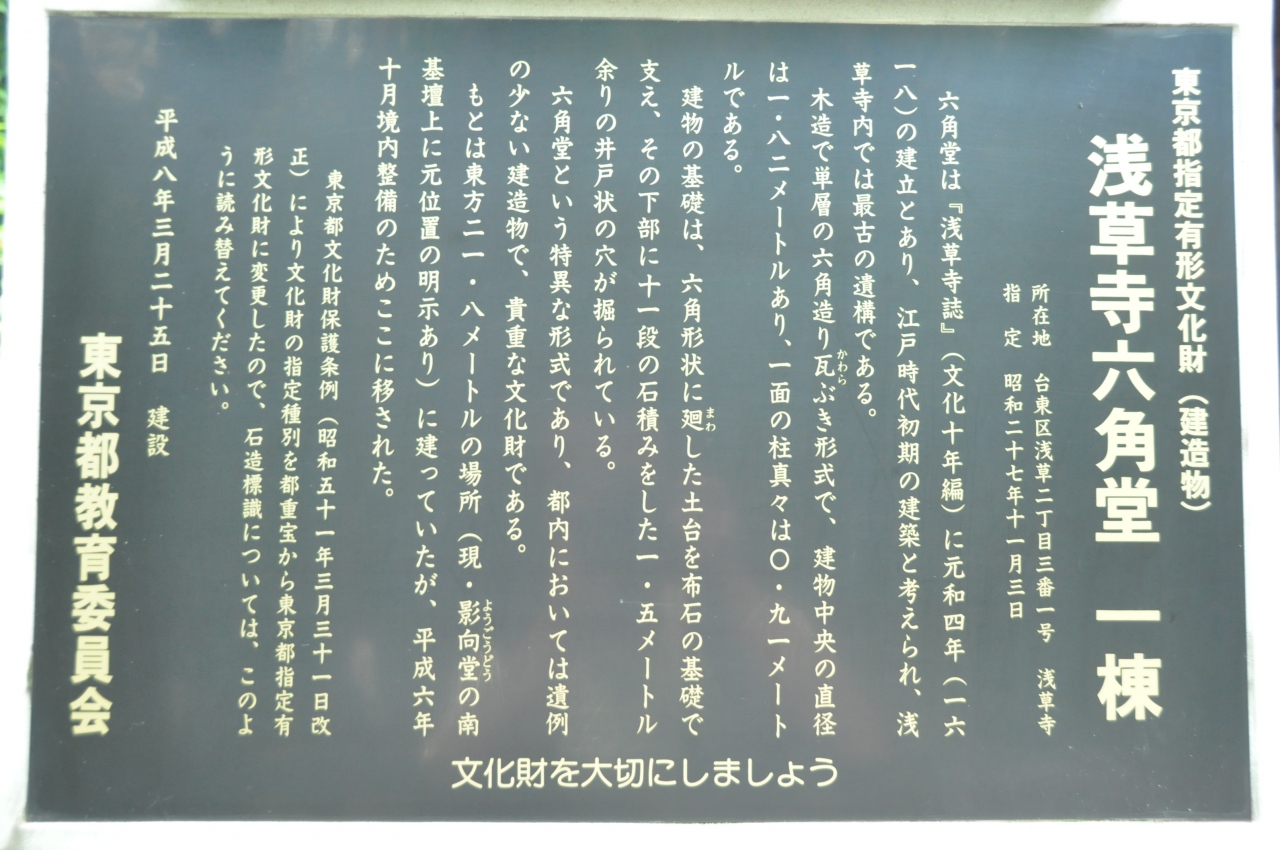 東京都指定有形文化財（建造物）
浅草寺六角堂 一棟
所在地 台東区浅草二丁目三番一号 浅草寺
指 定 昭和二十七年十一月三日
六角堂は『浅草寺誌』（文化十年編）に元和四年（一六
一八）の建立とあり、江戸時代初期の建築と考えられ、浅
草寺内では最古の遺構である。
木造で単層の六角造り瓦ぶき形式で、建物中央の直径
は一・八二メートルあり、一面の柱真々は〇・九一メート
ルである。
建物の基礎は、六角形状に廻した土台を布石の基礎で
支え、その下部に十一段の石積みをした一・五メートル
余りの井戸状の穴が掘られている。
六角堂という特異な形式であり、都内においては遺例
の少ない建造物で、貴重な文化財である。
もとは東方二一・八メートルの場所（現・影向堂の南
基壇上に元位置の明示あり）に建っていたが、平成六年
十月境内整備のためここに移された。
東京都文化財保護条例（昭和五十一年三月三十一日改
正）により文化財の指定種別を都重宝から東京都指定有
形文化財に変更したので、石造標識については、このよ
うに読み替えてください。
平成八年三月二十五日 建設
東京都教育委員会
文化財を大切にしましょう
かわら
まわ
ようごうどう